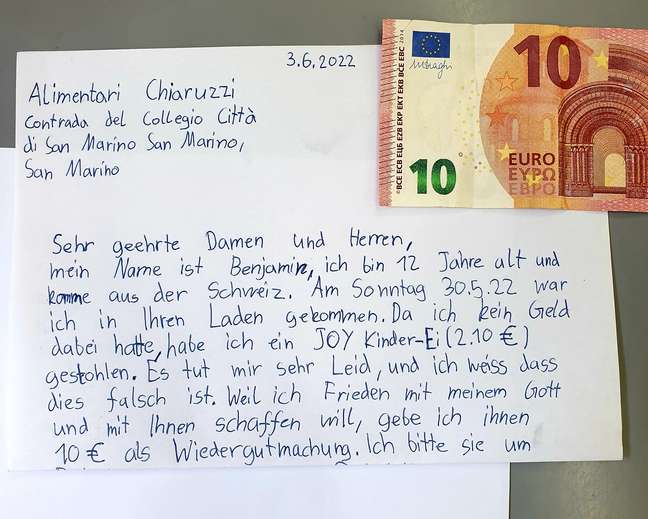 3.6.2022
Alimentari Chiaruzzi
Contrada del Collegio Città
di San Marino San Marino,
San Marino
Sehr geehrte Damen und Herren,
mein Name ist Benjamin, ich bin 12 Jahre alt und
komme aus der Schweiz. Am Sonntag 30.5.22 war
ich in Ihren Laden gekommen. Da ich kein Geld
dabei hatte, habe ich ein JOY Kinder-Ei (2.10 €)
gestohlen. Es tut mir sehr Leid, und ich weiss dass
dies falsch ist. Weil ich Frieden mit meinem Gott
und mit Ihnen schaffen will, gebe ich ihnen
10 € als Wiedergutmachung. Ich bitte sie um
BCE ECB ЕЦБ EZB EKP EKT EKB BCE EBC
2014
10
10
EURO
ΕΥΡΩ
ЕВРО